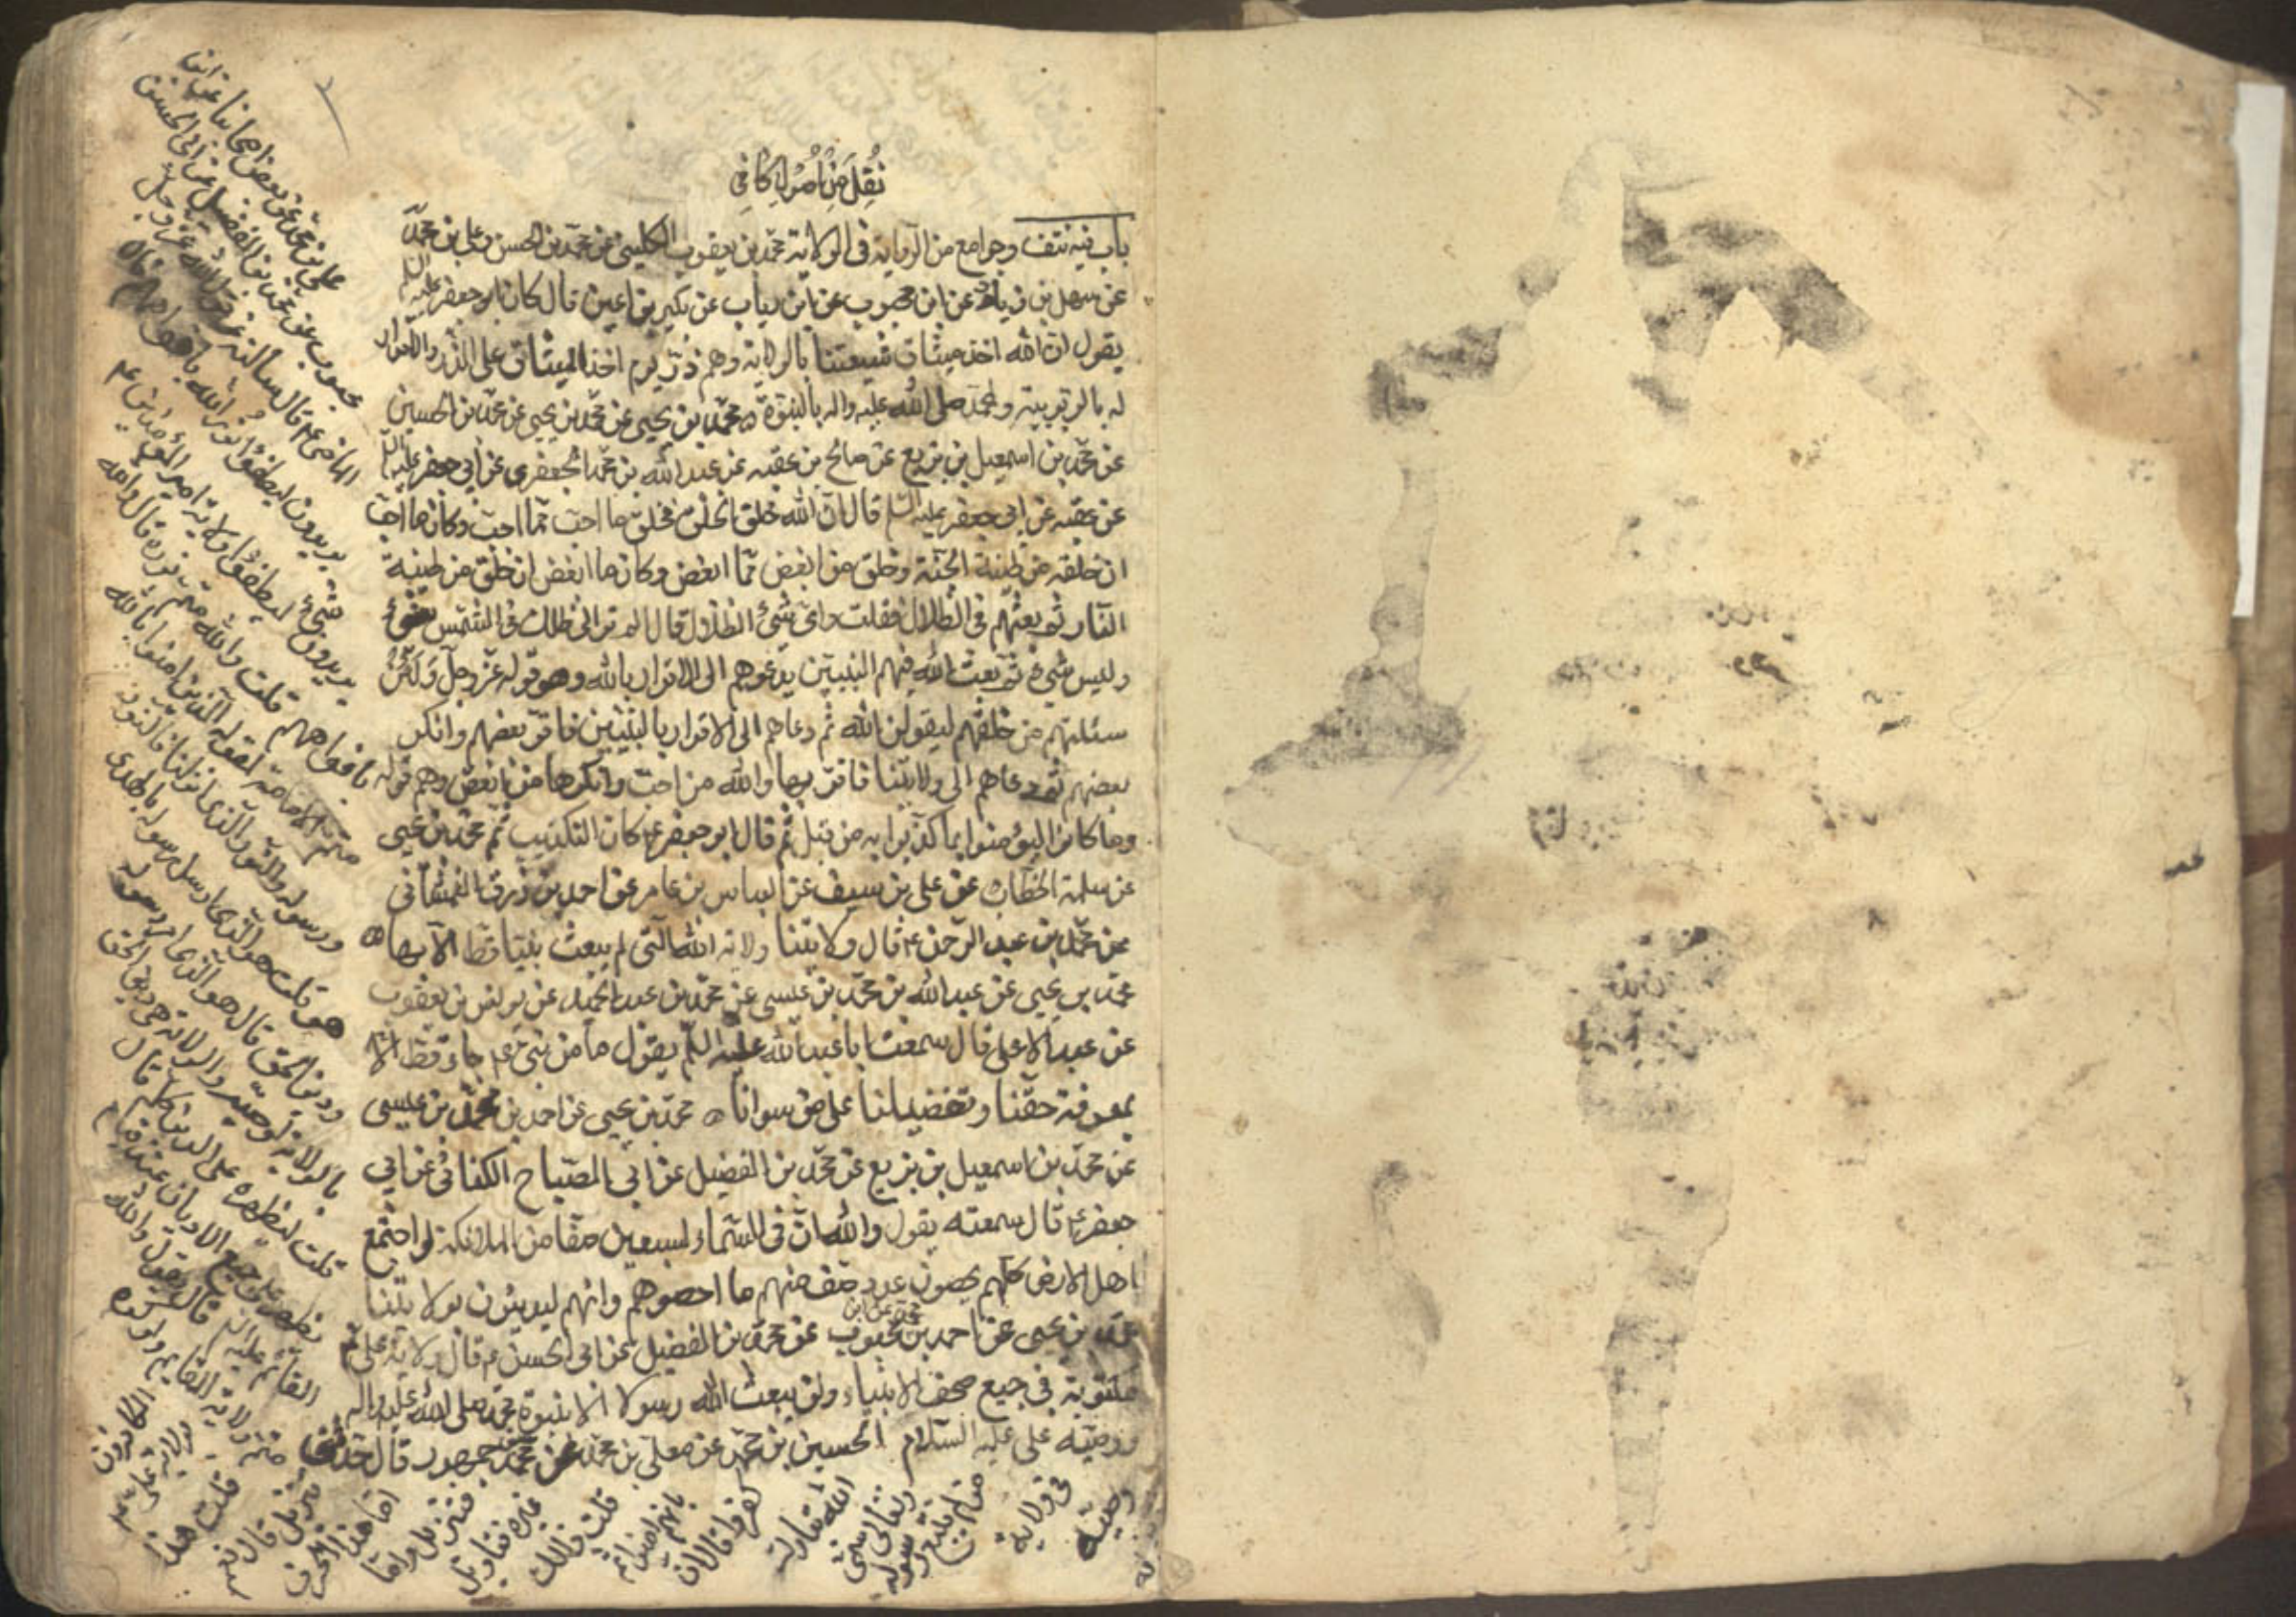 نُقِلَ مِنْ اُصُولِ كَافِي
باب فيه نتف وجوامع من الرواية في الولاية محمد بن يعقوب الكليني عن محمد بن الحسن وعلي بن محمد
عن سهل بن زياد عن ابن محبوب عن ابن رياب عن بكير بن اعين قال كان ابو جعفر عليه السلم
يقول ان الله اخذ ميثاق شيعتنا بالولاية وهم ذر يوم اخذ الميثاق على الذر والاقرار
له بالربوبية ولمحمد صلى الله عليه واله بالنبوة محمد بن يحيى عن محمد بن يحيى عن محمد بن الحسين
عن محمد بن اسمعيل بن بزيع عن صالح بن عقبه عن عبد الله بن محمد الجعفري عن ابي جعفر عليه السلم
عن عقبه عن ابي جعفر عليه السلم قال ان الله خلق الخلق فخلق ما احب مما احب وكان ما احب
ان خلقه من طينة الجنة وخلق من ابغض مما ابغض وكان ما ابغض ان خلق من طينة
النار ثم بعثهم في الظلال فقلت واى شئ الظلال قال الم تر الى ظلك في الشمس شئ
وليس شئ ثم بعث الله فيهم النبيين يدعوهم الى الاقرار بالله وهو قوله عز وجل ولئن
سئلتهم من خلقهم ليقولن الله ثم دعاهم الى الاقرار بالنبيين فاقر بعضهم وانكر
بعضهم ثم دعاهم الى ولايتنا فاقر بها والله من احب وانكرها من ابغض وهم قوله
وما كانوا ليؤمنوا بما كذبوا به من قبل ثم قال ابو جعفر ع كان التكذيب ثم محمد بن يحيى
عن سلمة الخطاب عن علي بن سيف عن العباس بن عامر عن احمد بن رزق الغمشاني
عن محمد بن عبد الرحمن ع قال ولايتنا ولاية الله التي لم يبعث نبيا قط الا بها
محمد بن يحيى عن عبد الله بن محمد بن عيسى عن محمد بن عبد الحميد عن يونس بن يعقوب
عن عبد الاعلى قال سمعت ابا عبد الله عليه السلم يقول ما من نبي جاء قط الا
بمعرفة حقنا وتفضيلنا على من سوانا محمد بن يحيى عن احمد بن محمد بن عيسى
عن محمد بن اسمعيل بن بزيع عن محمد بن الفضيل عن ابي الصباح الكناني عن ابي
جعفر ع قال سمعته يقول والله ان في السماء لسبعين صفا من الملائكة لو اجتمع
اهل الارض كلهم يحصون عدد صف منهم ما احصوهم وانهم ليدينون بولايتنا
محمد بن يحيى عن احمد بن محمد عن ابن محبوب عن محمد بن الفضيل عن ابي الحسن ع قال ولاية علي ع
مكتوبة في جميع صحف الانبياء ولن يبعث الله رسولا الا بنبوة محمد صلى الله عليه واله
ووصيه علي عليه السلام الحسين بن محمد عن معلى بن محمد عن محمد بن جمهور قال حدثنى
علي بن محمد عن بعض اصحابنا عن ابن
محبوب عن محمد بن الفضيل عن ابي الحسن
الماضي ع قال سالته عن قول الله عز وجل
يريدون ليطفؤا نور الله بافواههم قال
يريدون ليطفؤا ولاية امير المؤمنين ع
بافواههم قلت والله متم نوره قال والله
متم الامامة لقوله الذين امنوا بالله
ورسوله والنور الذي انزلنا فالنور
هو قلت هو الذي ارسل رسوله بالهدى
ودين الحق قال هو الذي امر رسوله
بالولاية لوصيه والولاية هي دين الحق
قلت ليظهره على الدين كله قال
يظهره على جميع الاديان عند قيام
القائم عليه السلم قال يقول الله والله
متم ولاية القايم ولو كره
الكافرون
بولاية علي ع
قلت هذا
تنزيل قال نعم
اما هذا الحرف
فتنزيل واما
غيره فتاويل
قلت ذلك
بانهم امنوا ثم
كفروا قال ان
الله تبارك
وتعالى سمى
من لم يتبع رسوله
في ولاية
وصيه